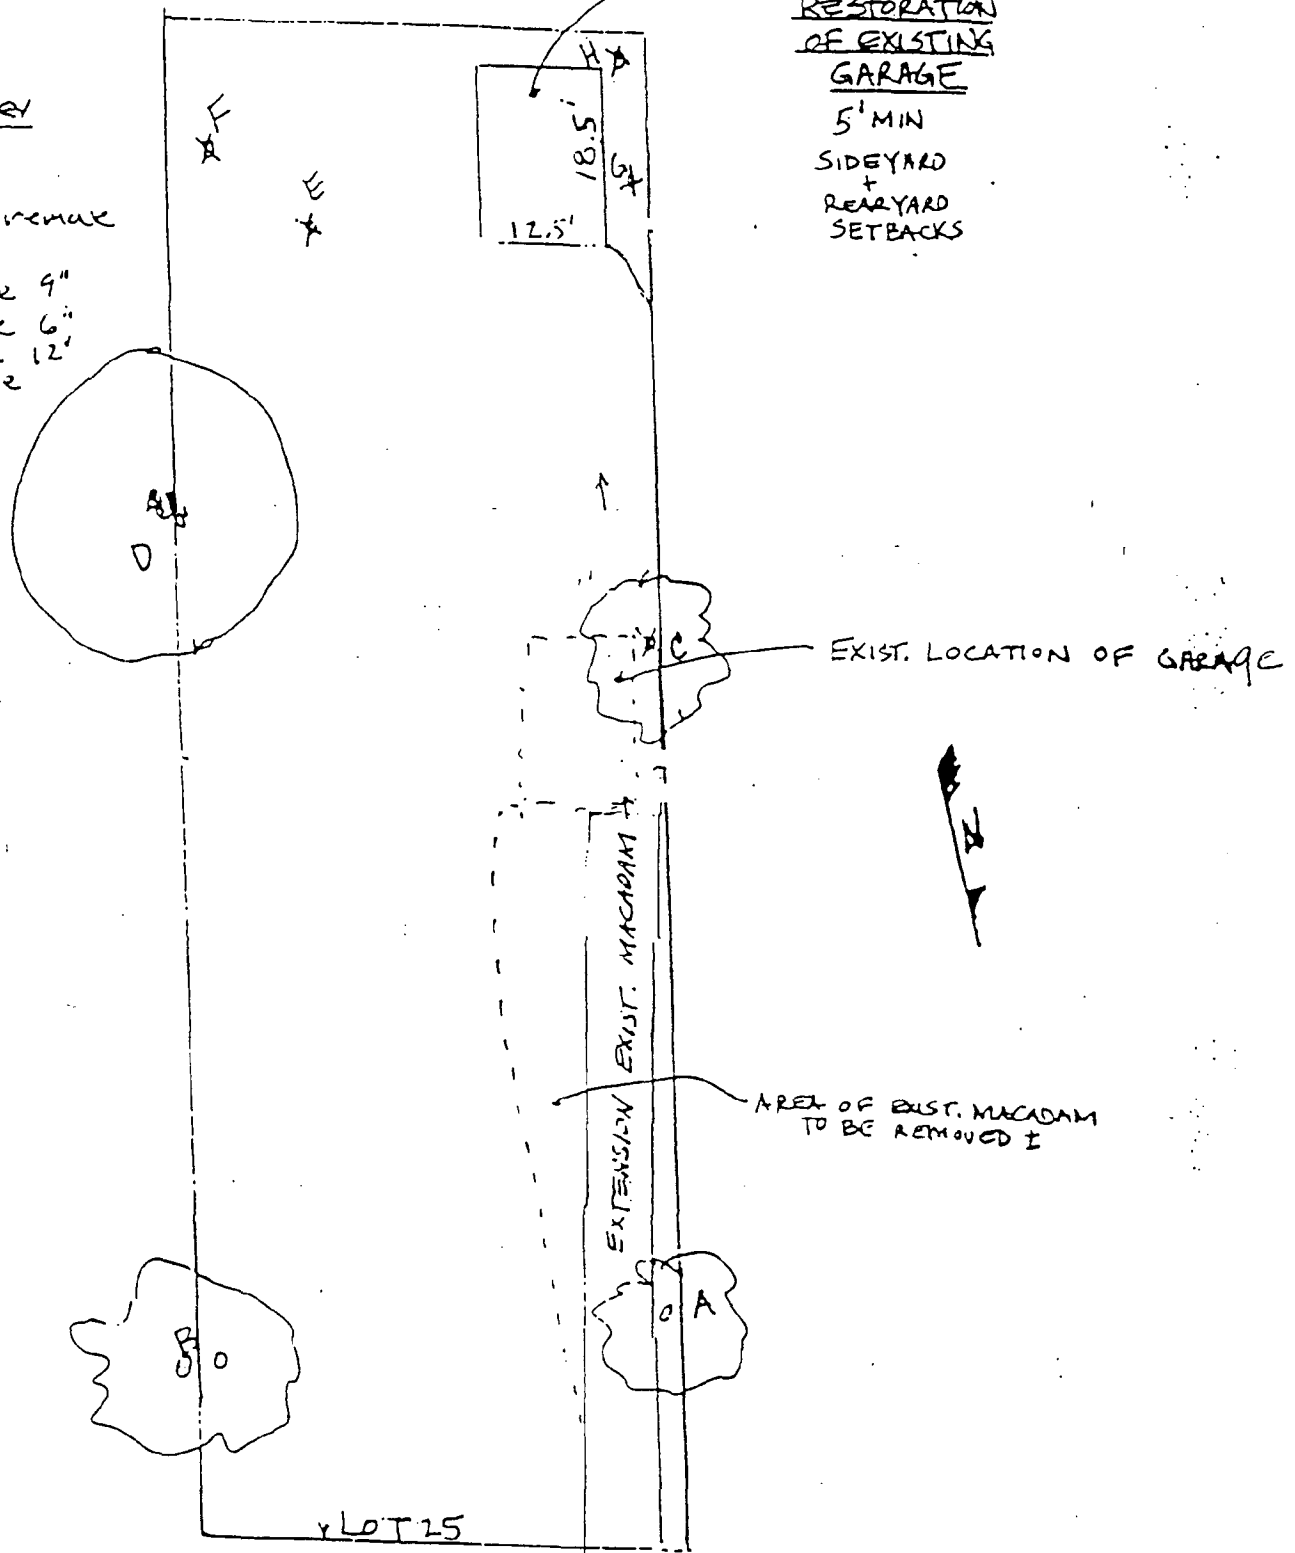 RESTORATION
OF EXISTING
GARAGE
5' MIN
SIDEYARD
+
REARYARD
SETBACKS
H
18.5'
G
12.5'
F
E
9"
6"
12'
D
C
EXIST. LOCATION OF GARAGE
N
EXTENSION EXIST. MACADAM
AREA OF EXIST. MACADAM
TO BE REMOVED ±
A
B
LOT 25